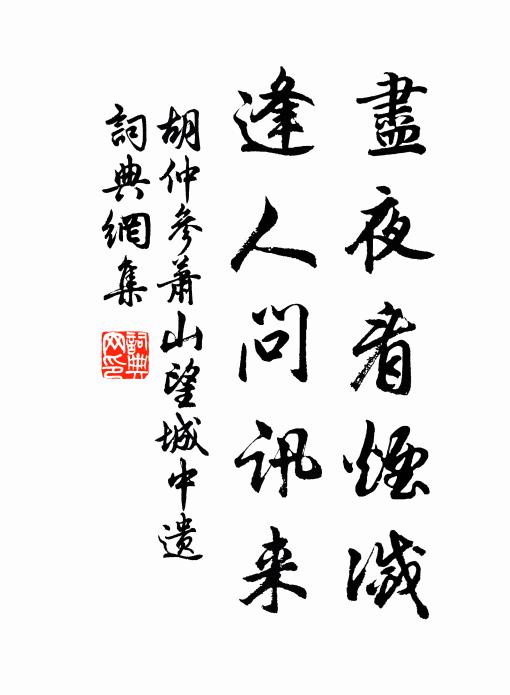 盡夜看煙滅
逢人問訊来
胡仲參蕭山望城中遺
詞典網集
詞典网印